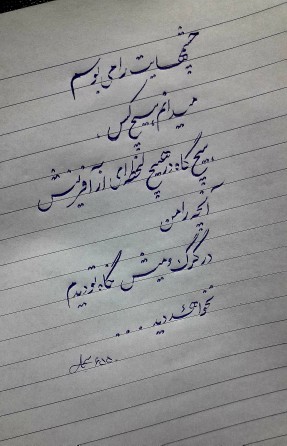 چشمهایت را می بوسم
میدانم، هیچ کس،
هیچ گاه در هیچ لحظه ای از آفرینش
آنچه را من
در گرگ و میش نگاه تو دیدم
نخواهد دید ...